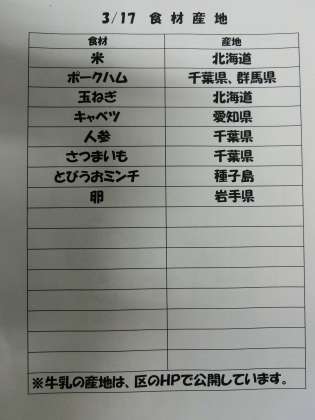 3/17 食材産地
食材 産地
米 北海道
ポークハム 千葉県、群馬県
玉ねぎ 北海道
キャベツ 愛知県
人参 千葉県
さつまいも 千葉県
とびうおミンチ 種子島
卵 岩手県
※牛乳の産地は、区のHPで公開しています。